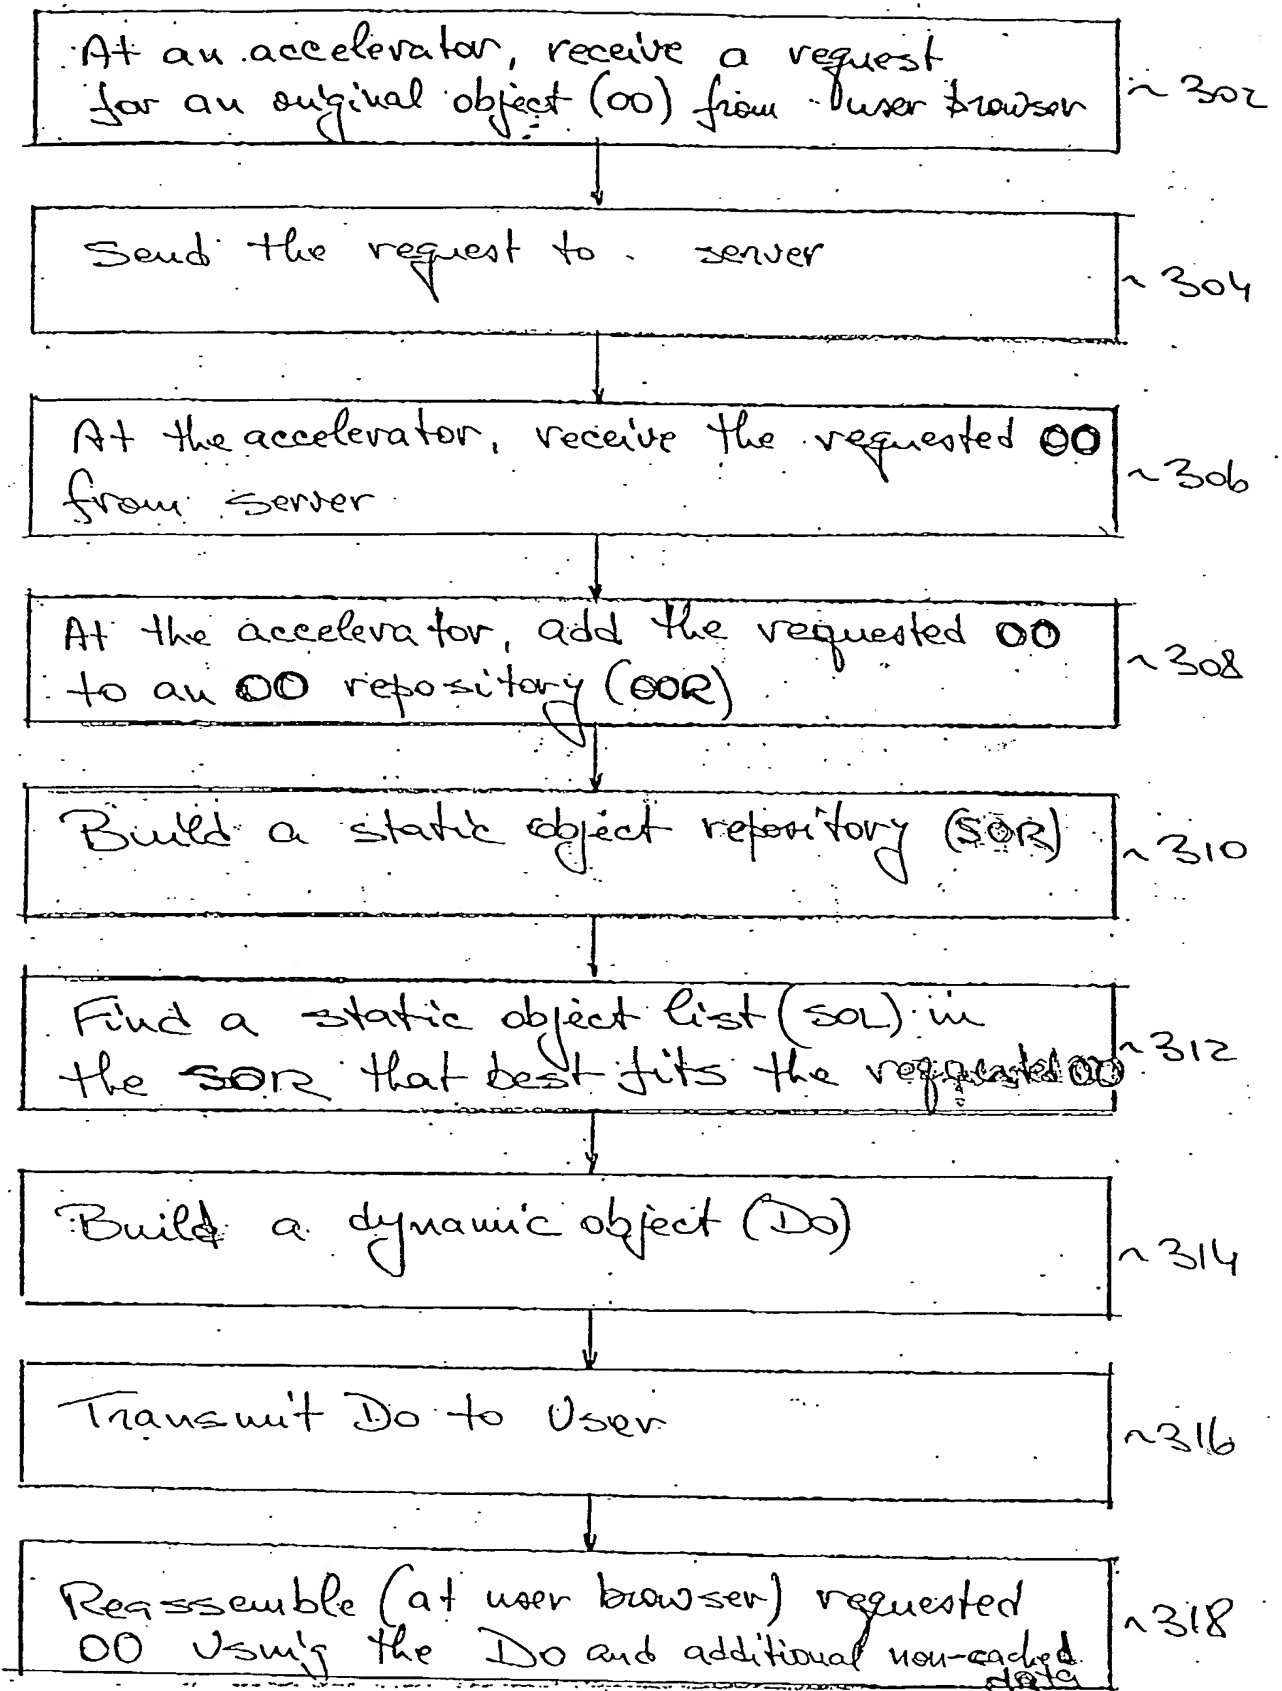 At an accelerator, receive a request
for an original object (OO) from user browser
~302
Send the request to server
~304
At the accelerator, receive the requested OO
from server
~306
At the accelerator, add the requested OO
to an OO repository (OOR)
~308
Build a static object repository (SOR)
~310
Find a static object list (SOL) in
the SOR that best fits the requested OO
~312
Build a dynamic object (DO)
~314
Transmit DO to User
~316
Reassemble (at user browser) requested
OO Using the DO and additional non-cached
data
~318